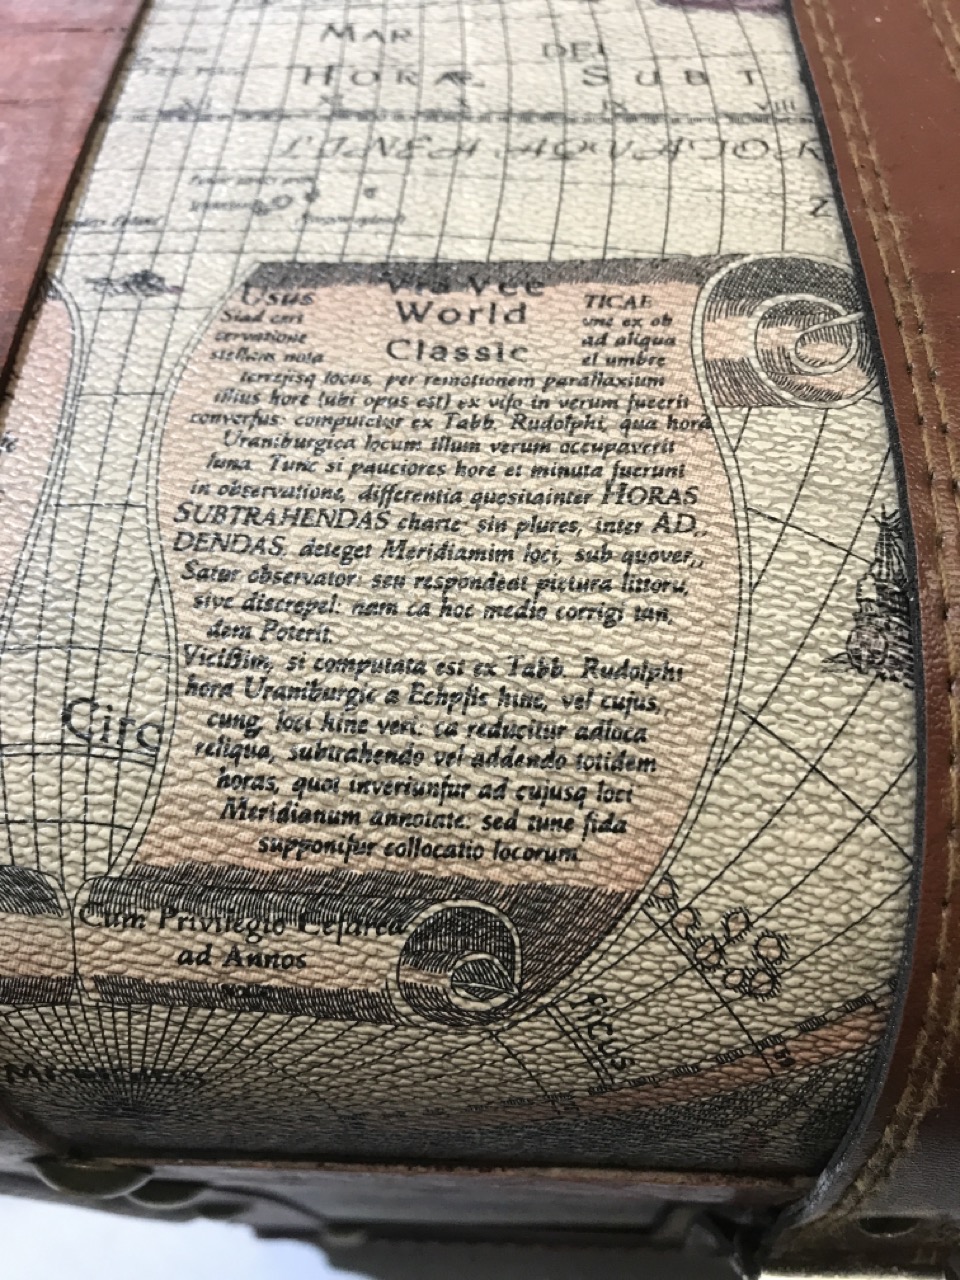 MAR DEL
HORÆ SUBT
XI X IX VIII
LINEA AQVATOR
Usus Via Vee TICAE
Siad erri World vne ex ob
cervatione ad aliqua
stellens nota Classic el umbre
terrejsq locus, per remotionem parallaxium
illius hore (ubi opus est) ex vifo in verum fuerit
converfus: computctur ex Tabb. Rudolphi, qua hora
Uraniburgica locum illum verum occupaverit
luna. Tunc si pauciores hore et minuta fuerunt
in observatione, differentia quesitainter HORAS
SUBTRAHENDAS charte: sin plures, inter AD,,
DENDAS, deteget Meridiamim loci, sub quover,,
Satur observator: seu respondeat pictura littoru,
sive discrepel: nam ca hoc medio corrigi tan,
dem Poterit.
Viciffim, si computata est ex Tabb. Rudolphi
hora Uraniburgic a Echpfis hinc, vel cujus,
cung, loci hine veri: ca reducitur adloca
reliqua, subtrahendo vel addendo totidem
horas, quot inveriunfur ad cujusq loci
Meridianum annotate: sed tune fida
supponifur collocatio locorum
Circ
Cum Privilegio Cefarea
ad Annos